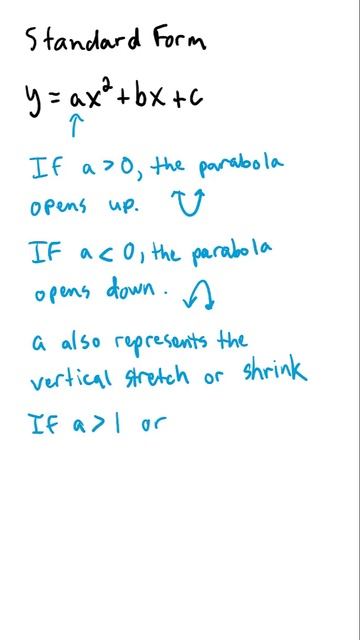 Standard Form
y = ax² + bx + c
If a > 0, the parabola
opens up.
If a < 0, the parabola
opens down.
a also represents the
vertical stretch or shrink
If a > 1 or